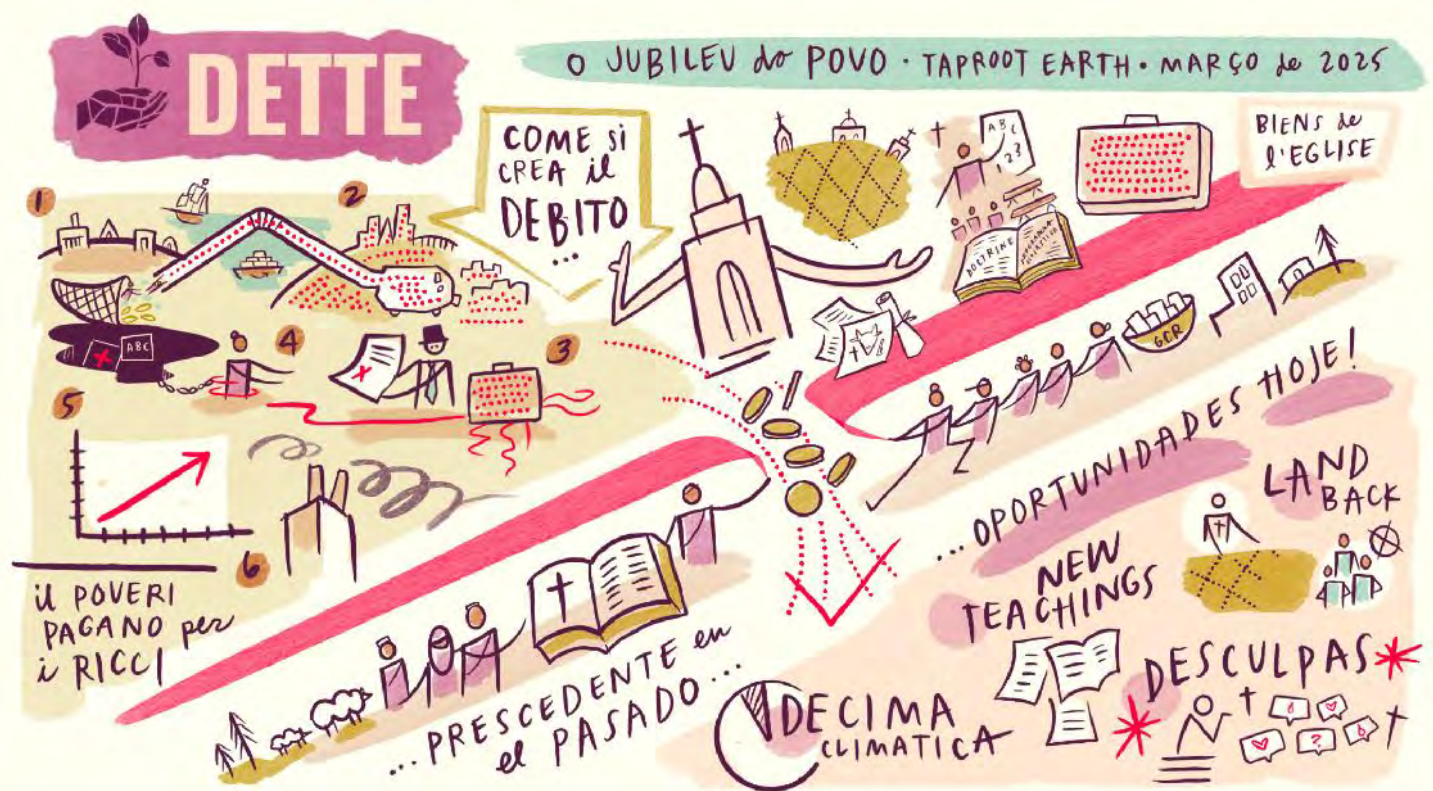 DETTE
O JUBILEU do POVO · TAPROOT EARTH · MARÇO de 2025
COME SI
CREA il
DEBITO
...
BIENS de
l'EGLISE
ABC
123
DOCTRINE
1
2
ABC
4
3
5
6
il POVERI
PAGANO per
i RICCI
GCR
...PRESCEDENTE en
el PASADO...
...OPORTUNIDADES HOJE!
LAND
BACK
NEW
TEACHINGS
DESCULPAS
?
DECIMA
CLIMATICA